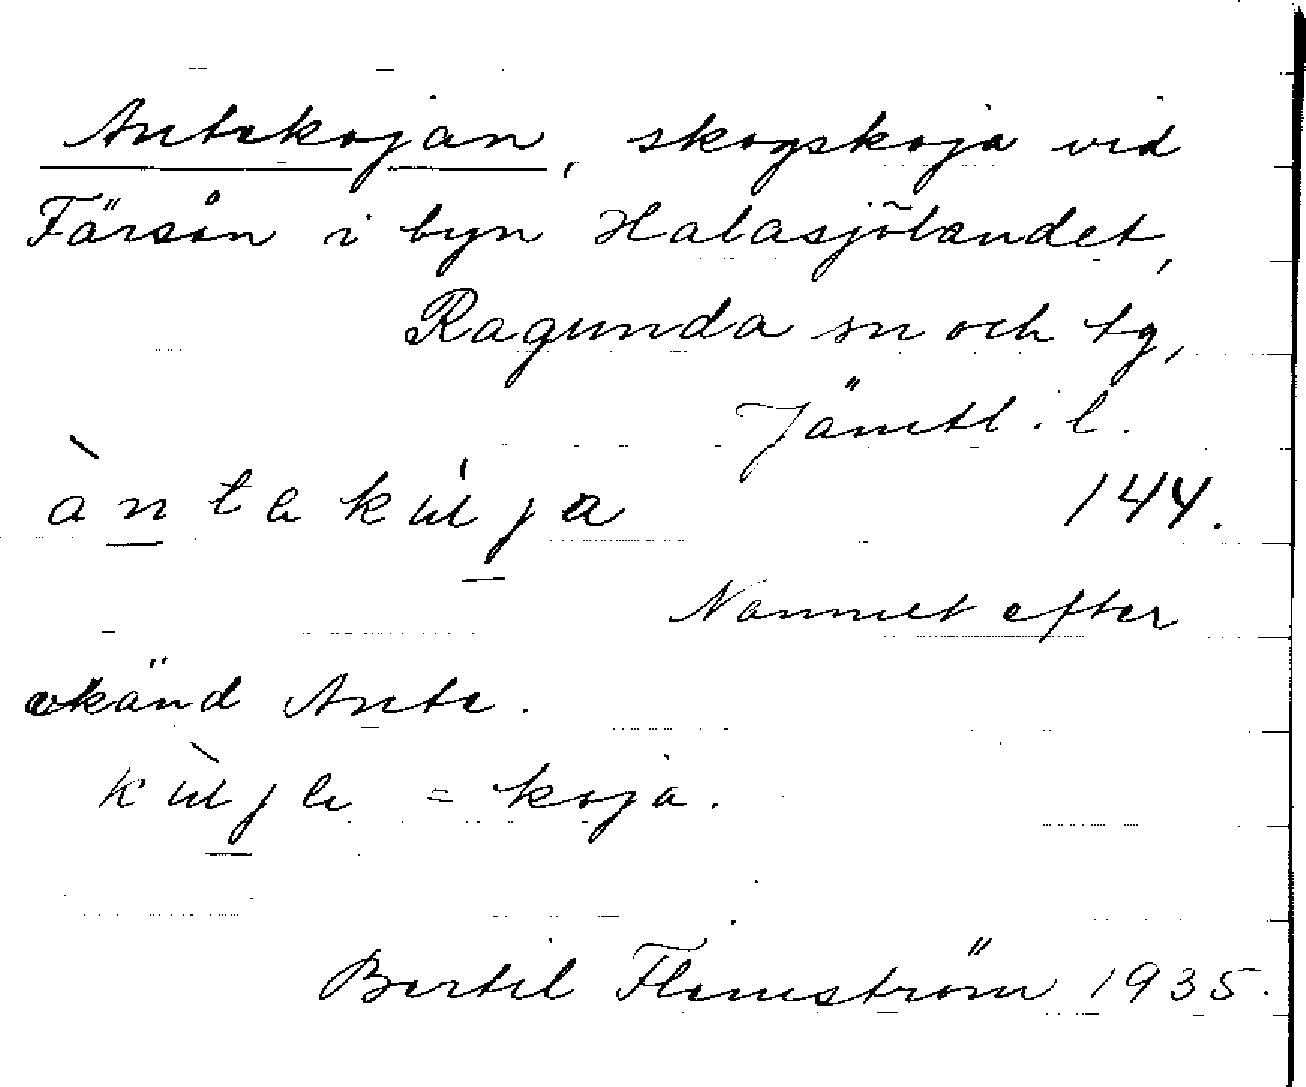 Antekojan, skogskoja vid
Färsån i byn Halasjölandet,
Ragunda sn och tg,
Jämtl. l.
àntakúja 144.
Namnet efter
okänd Ante.
kùja = koja.
Bertil Flemström 1935.